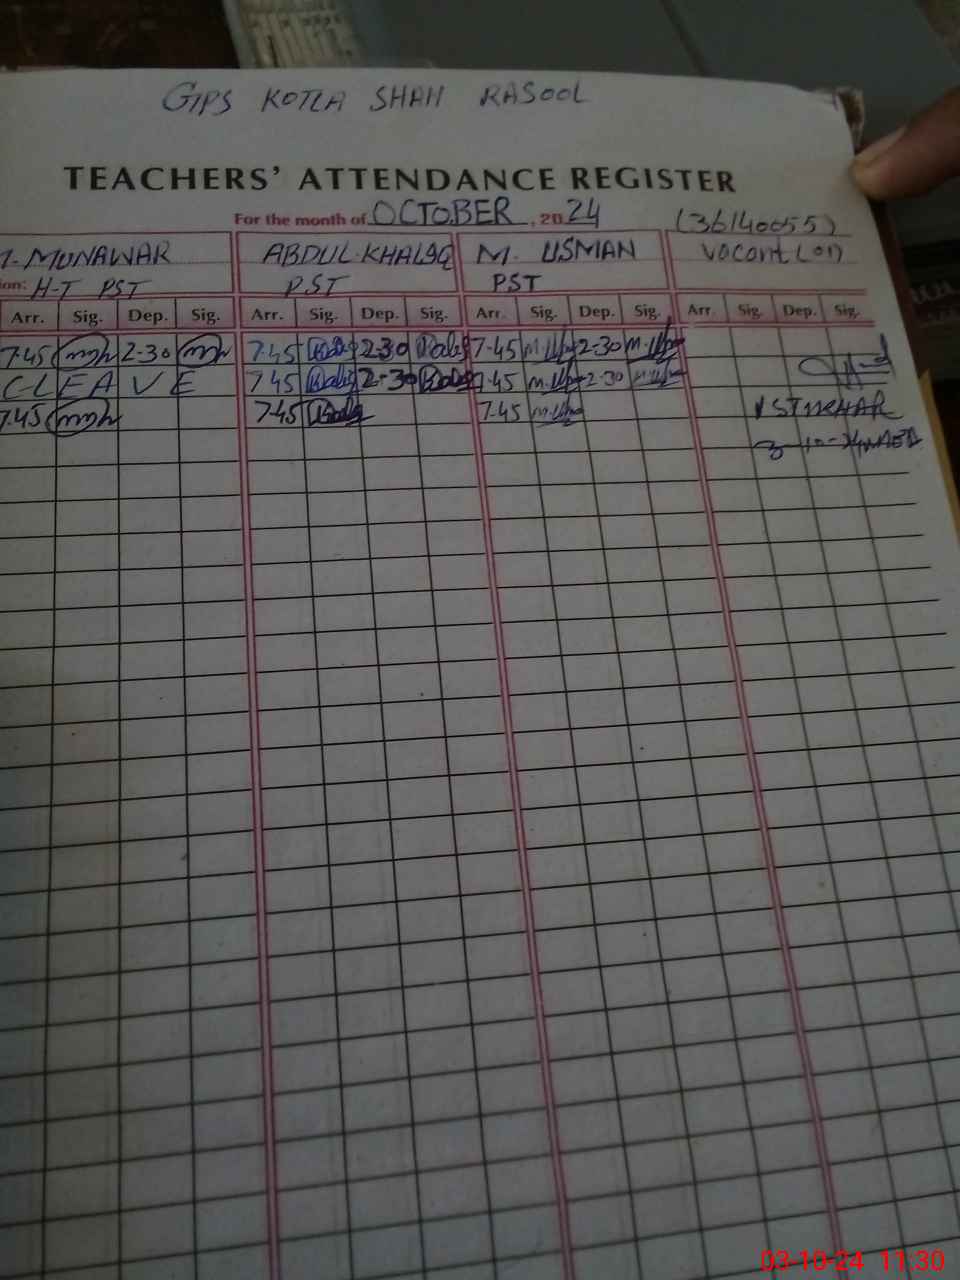 GPS KOTLA SHAH RASOOL
TEACHERS' ATTENDANCE REGISTER
For the month of OCTOBER, 2024 (36140055)
MUNAWAR ABDUL KHALIQ M. USMAN Vacant (01)
ion: H-T PST PST PST
Arr. Sig. Dep. Sig. Arr. Sig. Dep. Sig. Arr. Sig. Dep. Sig. Arr. Sig. Dep. Sig.
7-45 2-30 7-45 2-30 7-45 2-30
C LEAVE 7-45 2-30 7-45 2-30
7-45 7-45 7-45
03-10-24 11:30